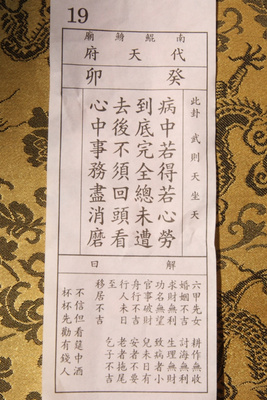 19
南鯤鯓廟
代天府
癸卯
此卦 武則天坐天
病中若得苦心勞
到底完全總未遭
去後不須回頭看
心中事務盡消磨
解曰
六甲先女 耕作無收
婚姻不吉 討海無利
求財無利 生理無財
功名無望 致病者小
官事破財 兒未日有
舟行不吉 安者不要
行人未日至 老者拖尾
移居不吉 乞子不吉
不信但看是中酒
杯杯先勸有錢人